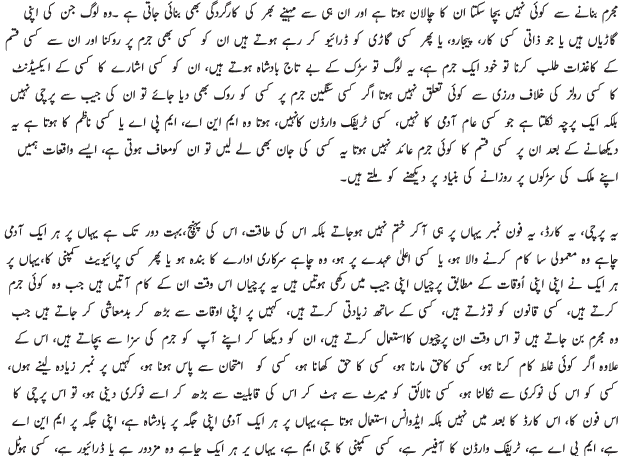 مجرم بنانے سے کوئی نہیں بچا سکتا ان کا چالان ہوتا ہے اور ان ہی سے مہینے بھر کی کارگردگی بھی بنائی جاتی ہے ۔وہ لوگ جن کی اپنی
گاڑیاں ہیں یا جو ذاتی کسی کار، پیجارو، یا پھر کسی گاڑی کو ڈرائیو کر رہے ہوتے ہیں ان کو کسی بھی جرم پر روکنا اور ان سے کسی قسم
کے کاغذات طلب کرنا تو خود ایک جرم ہے، یہ لوگ تو سڑک کے بے تاج بادشاہ ہوتے ہیں، ان کو کسی اشارے کا کسی کے ایکسیڈنٹ
کا کسی رولز کی خلاف ورزی سے کوئی تعلق نہیں ہوتا اگر کسی سنگین جرم پر کسی کو روک بھی دیا جائے تو ان کی جیب سے پرچی نہیں
بلکہ ایک پرچہ نکلتا ہے جو کسی عام آدمی کا نہیں، کسی ٹریفک وارڈن کانہیں، ہوتا وہ ایم این اے، ایم پی اے یا کسی ناظم کا ہوتا ہے یہ
دیکھانے کے بعد ان پر کسی قسم کا کوئی جرم عائد نہیں ہوتا یہ کسی کی جان بھی لے لیں تو ان کومعاف ہوتی ہے، ایسے واقعات ہمیں
اپنے ملک کی سڑکوں پر روزانے کی بنیاد پر دیکھنے کو ملتے ہیں۔
یہ پرچی، یہ کارڈ، یہ فون نمبر یہاں پر ہی آکر ختم نہیں ہوجاتے بلکہ اس کی طاقت، اس کی پہنچ،بہت دور تک ہے یہاں پر ہر ایک آدمی
چاہے وہ معمولی سا کام کرنے والا ہو، یا کسی اعلیٰ عہدے پر ہو، وہ چاہے سرکاری ادارے کا بندہ ہو یا پھر کسی پرائیویٹ کمپنی کا،یہاں پر
ہر ایک نے اپنی اپنی اُوقات کے مطابق پرچیاں اپنی جیب میں رکھی ہوتیں ہیں یہ پرچیاں اس وقت ان کے کام آتیں ہیں جب وہ کوئی جرم
کرتے ہیں، کسی قانون کو توڑتے ہیں، کسی کے ساتھ زیادتی کرتے ہیں، کہیں پر اپنی اوقات سے بڑھ کر بدمعاشی کر جاتے ہیں جب
وہ مجرم بن جاتے ہیں تو اس وقت ان پرچیوں کااستعمال کرتے ہیں، ان کو دیکھا کر اپنے آپ کو جرم کی سزا سے بچاتے ہیں، اس کے
علاوہ اگر کوئی غلط کام کرنا ہو، کسی کاحق مارنا ہو، کسی کا حق کھانا ہو، کسی کو امتحان سے پاس ہونا ہو، کہیں پر نمبر زیادہ لینے ہوں،
کسی کو اس کی نوکری سے نکالنا ہو، کسی نالائق کو میرٹ سے ہٹ کر اس کی قابلیت سے بڑھ کر اسے نوکری دینی ہو، تو اس پرچی کا
اس فون کا، اس کارڈ کا بعد میں نہیں بلکہ ایڈوانس استعمال ہوتا ہے،یہاں پر ہر ایک آدمی اپنی جگہ پر بادشاہ ہے، اپنی جگہ پر ایم این اے
ہے، ایم پی اے ہے، ٹریفک وارڈن کا آفیسر ہے، کسی کمپنی کا جی ایم ہے، یہاں پر ہر ایک چاہے وہ مزدور ہے یا ڈرائیور ہے، کسی ہوٹل